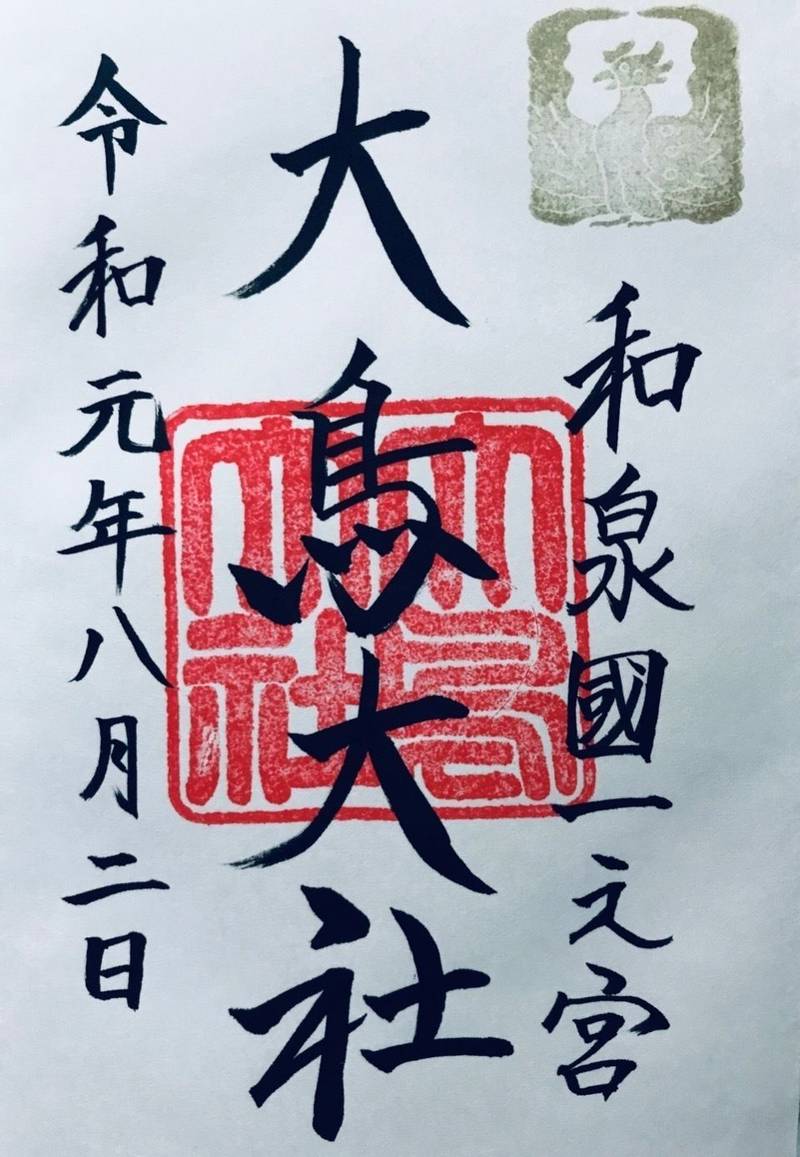 和泉國一之宮
大鳥大社
大鳥大社
令和元年八月二日